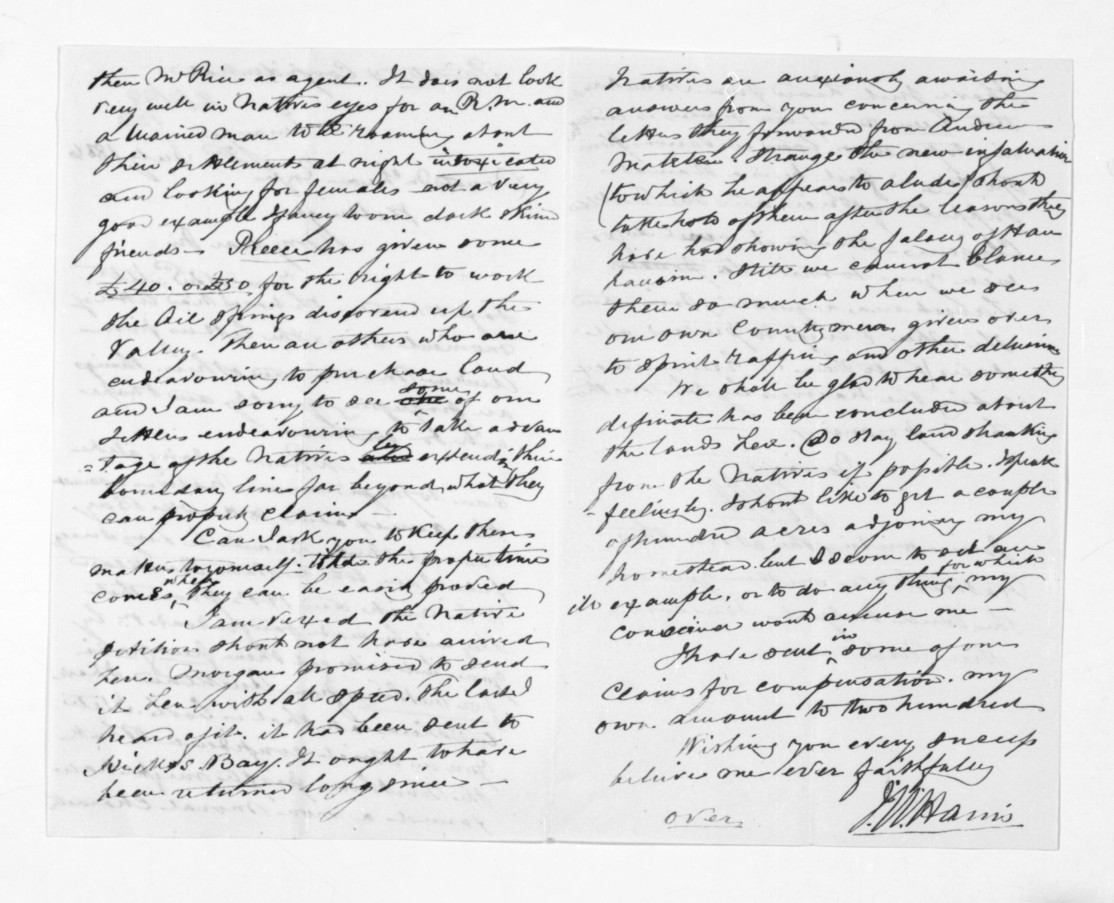 than Mr Rice as agent. It does not look
very well in Natives eyes for an R.M. and
a married man to be roaming about
their settlements at night intoxicated
and looking for females - not a very
good example I fancy to our dark skin
friends - Reece has given some
£40. or £50. for the right to work
the Oil Springs discovered up the
Valley. There are others who are
endeavouring to purchase land
and I am sorry to see some of our
settlers endeavouring to take advan
=tage of the Natives by extending their
boundary lines far beyond what they
can properly claim -
Can I ask you to keep these
matters to yourself. The proper time
comes when they can be easily proved
I am vexed the Native
petition should not have arrived
here. Morgan promised to send
it here with all speed. The last I
heard of it. it had been sent to
Wicks Bay. It ought to have
been returned long since -
Natives are anxiously awaiting
answers from you concerning the
letters they forwarded from Andrew
Matete. Strange the new infatuation
(to which he appears to alude) should
take hold of them after the leasons they
have had showing the falacy of Hau
hauism. Still we cannot blame
them so much when we see
our own Countrymen given over
to spirit rapping and other delusions
We shall be glad to hear something
definate has been concluded about
the lands here. Do stay land sharking
from the Natives if possible. I speak
feelingly. I should like to get a couple
of hundred acres adjoining my
homestead. but I scorn to set an
ill example, or to do any thing for which my
conscience would accuse me -
I have sent in some of our
claims for compensation. my
own. amount to two hundred
Wishing you every success
believe me ever faithfully
J.W. Harris
over